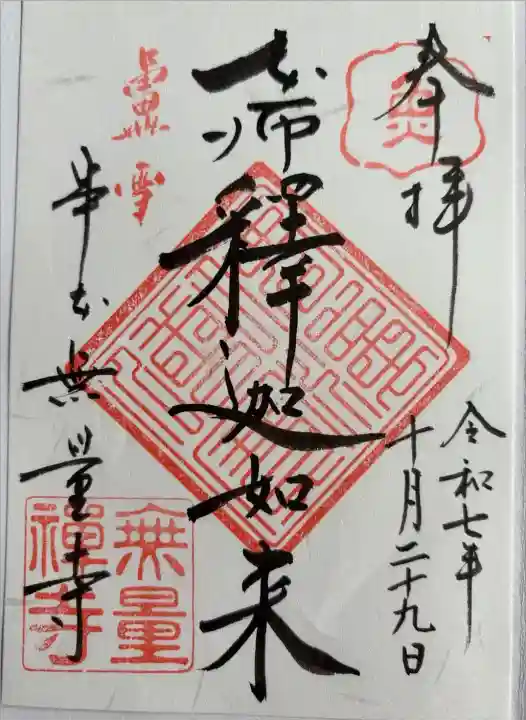 奉拝
令和七年
十月二十九日
本師釋迦如来
蘆雪
串本無量寺
無量
禪寺